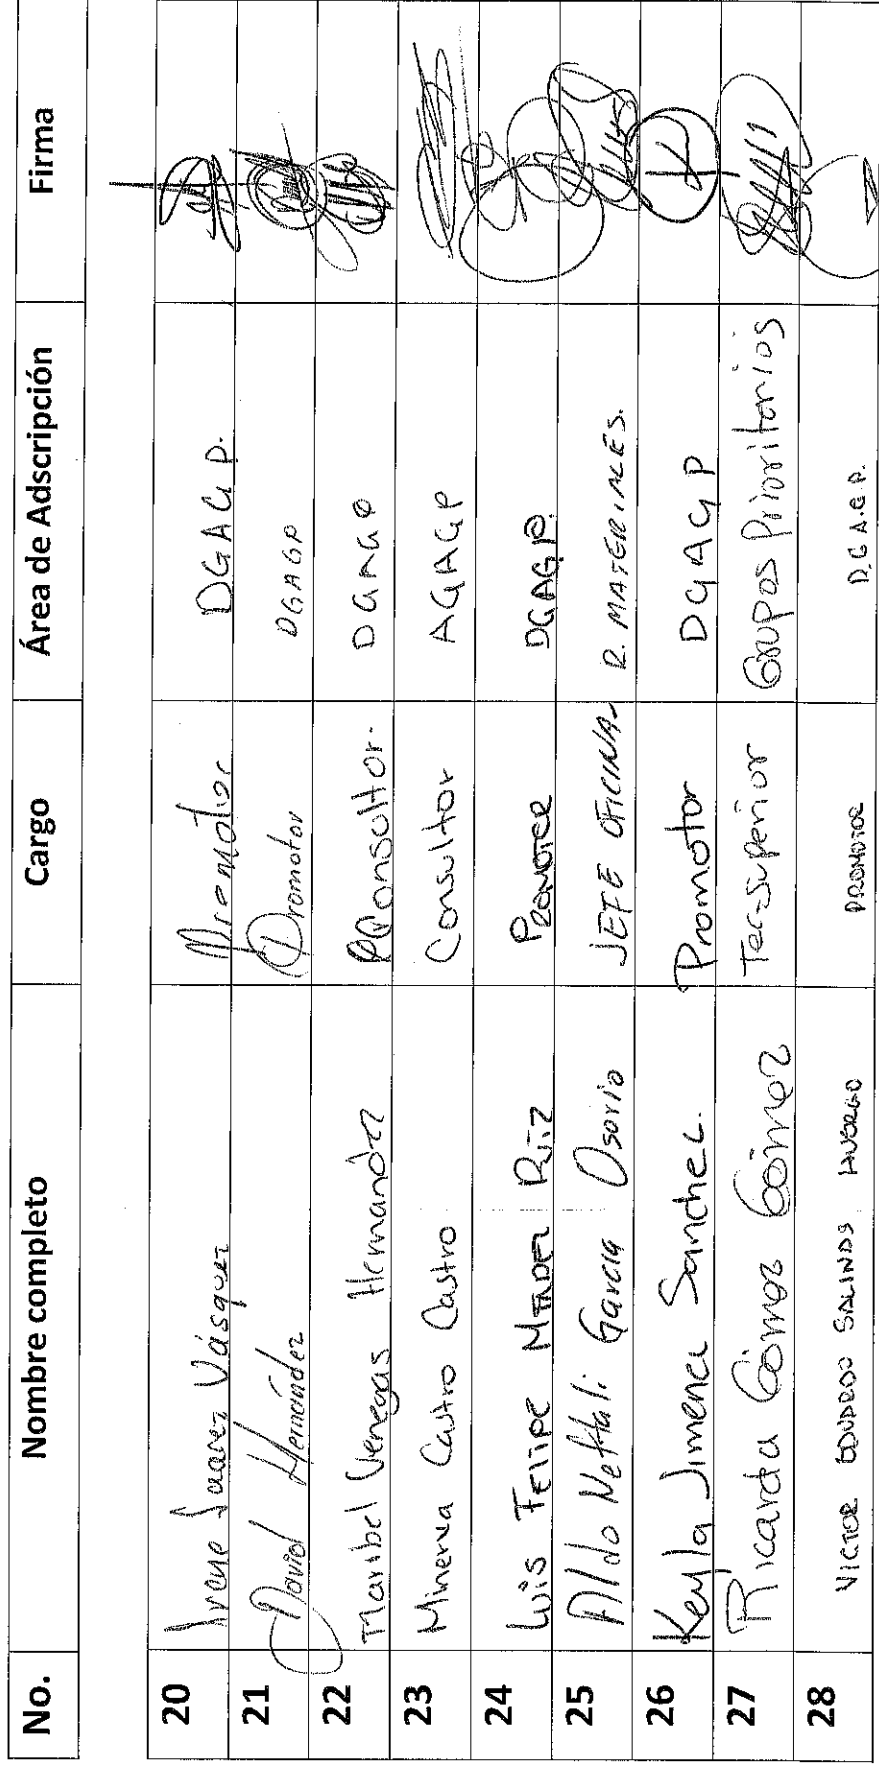 No. Nombre completo Cargo Área de Adscripción Firma
20 Irene Juarez Vásquez Promotor DGAGP.
21 David Hernández Promotor DGAGP
22 Maribel Venegas Hernandez Consultor. DGAGP
23 Minerva Castro Castro Consultor AGAGP
24 Luis Felipe Mendez Ruiz Promotor DGAGP.
25 Aldo Neftali Garcia Osorio JEFE OFICINA R. MATERIALES.
26 Keyla Jimenez Sanchez. Promotor DGAGP
27 Ricarda Gómez Gómez Tec-Superior Grupos Prioritarios
28 VICTOR EDUARDO SALINAS PROMOTOR D.G.A.G.P.